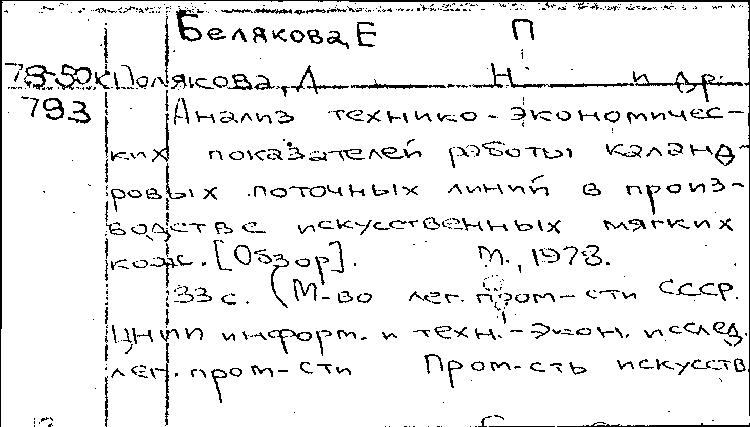 Белякова, Е П
78-50к Полякова, Л Н и др.
793 Анализ технико-экономичес-
ких показателей работы каланд-
ровых поточных линий в произ-
водстве искусственных мягких
кож. [Обзор]. М., 1978.
33 с. (М-во лег. пром-сти СССР.
ЦНИИ информ. и техн.-экон. исслед.
лег. пром-сти Пром-сть искусств.